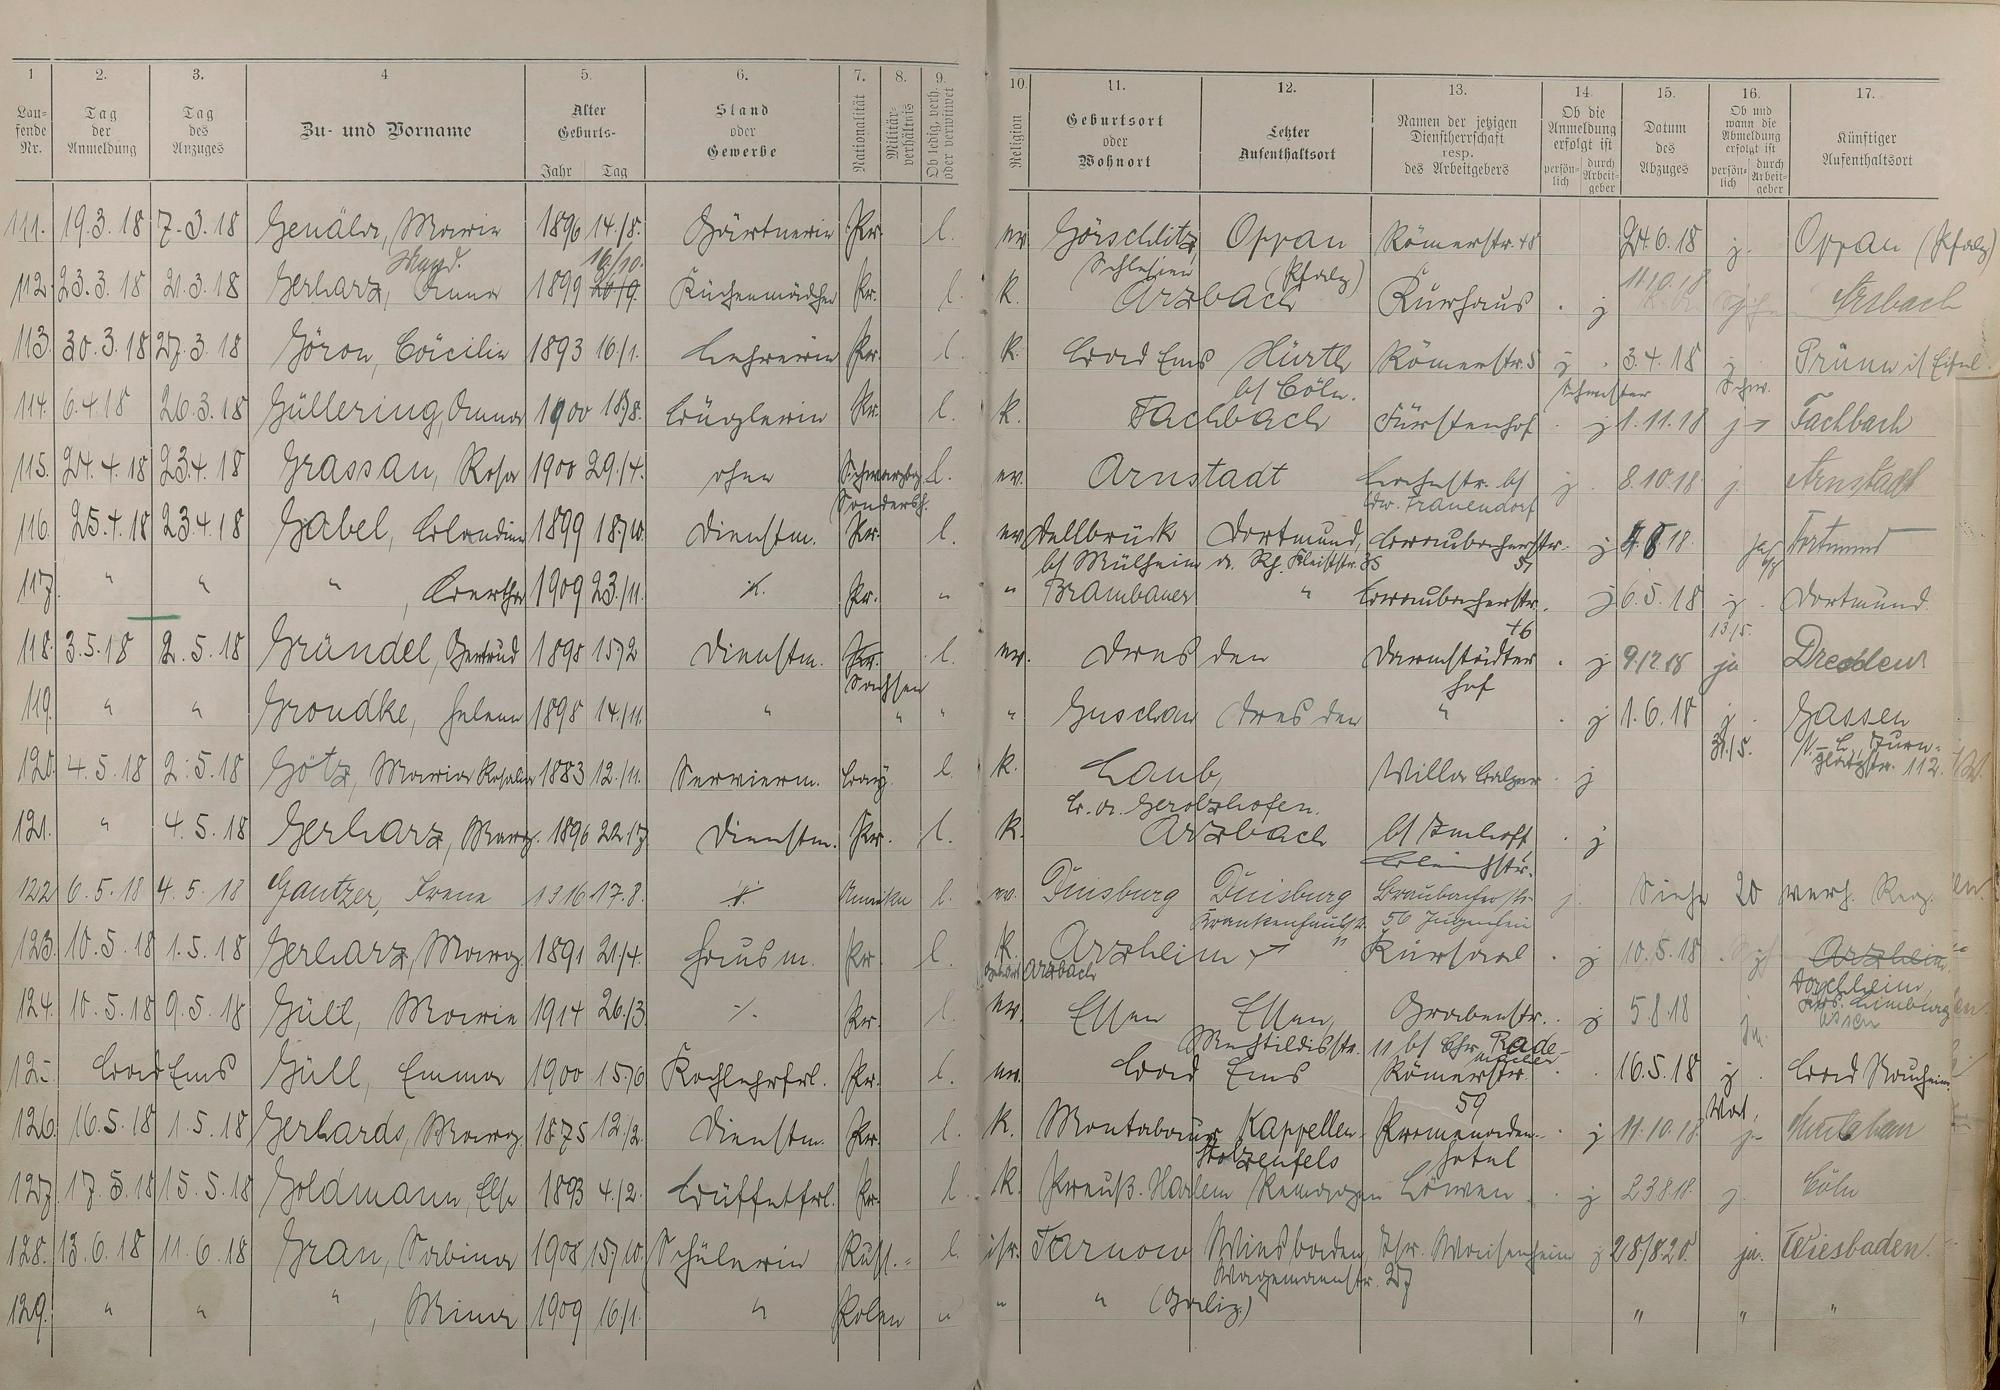 1 2. 3. 4 5. 6. 7. 8. 9. 10 11. 12. 13. 14. 15. 16. 17.
Laufende Nr. Tag der Anmeldung Tag des Anzuges Zu- und Vorname Alter Geburts- Jahr Tag Stand oder Gewerbe Nationalität Militärverhältnis Ob ledig, verh. oder verwitwet Religion Geburtsort oder Wohnort Letzter Aufenthaltsort Namen der jetzigen Dienstherrschaft resp. des Arbeitgebers Ob die Anmeldung erfolgt ist persönlich durch Arbeitgeber Datum des Abzuges Ob und wann die Abmeldung erfolgt ist persönlich durch Arbeitgeber Künftiger Aufenthaltsort
111. 19.3.18 7.3.18 Marie 1896 14./8. Gärtnerin Pr. l. ev. Görschlitz, Oppau Römerstr. 48 24.6.18 j. Oppau (Pfalz)
Schlesien Pfalz)
16/10.
112. 23.3.18 21.3.18 Gerharz, Anna 1899 20/9. Küchenmädchen Pr. l. k. Arzbach Kurhaus . j 11.10.18 Arzbach
113. 30.3.18 27.3.18 Göron, Cäcilie 1893 16/1. Lehrerin Pr. l. k. Bad Ems Hürth Römerstr. 5 j . 3.4.18 j Prüm i/ Eifel.
b/ Cöln. Schwester Schw.
114. 6.4.18 26.3.18 Güllering, Anna 1900 18/8. Büglerin Pr. l. k. Fachbach Fürstenhof . j 1.11.18 j Fachbach
115. 24.4.18 23.4.18 Grassau, Rosa 1900 29./4. ohne Schwarzbg. l. ev. Arnstadt b/ j . 8.10.18 j. Arnstadt
Sondersh. Frauendorf
116. 25.4.18 23.4.18 Gabel, Blandine 1899 18./10. Dienstm. Pr. l. ev. Dellbrück Dortmund, Braubacherstr. . j 18. Dortmund
b/ Mülheim a. Rh. Kleiststr. 35 51
117. " " " , Bertha 1909 23./11. ./. Pr. " " Brambauer " Braubacherstr. . j 6.5.18 j . Dortmund.
46 13/5.
118. 3.5.18 2.5.18 Gründel, Gertrud 1898 15/2 Dienstm. Pr. l. ev. Dresden Darmstädter . j 9.12.18 ja Dresden
Sachsen Hof
119. " " Grondke, Helene 1898 14./11. " " " " Guschau Dresden " . j 1.6.18 j . Gassen
31/5. N.-L. 112.
120. 4.5.18 2.5.18 Götz, Maria Rosalia 1883 12./11. Servierm. Bay. l. k. Laub, Villa Balzer . j
B. A. Gerolzhofen.
121. " 4.5.18 Gerharz, Marg. 1896 22./7 Dienstm. Pr. l. k. Arzbach b/ Imhoff, . j
122 6.5.18 4.5.18 Gantzer, Irene 1916 17.8. ./. l. ev. Duisburg Duisburg Braubacherstr. j. Siehe 20 verh. Reg.
56
123. 10.5.18 1.5.18 Gerharz, Marg. 1891 21./4. Hausm. Pr. l. k. Arzheim Kursaal . j 10.5.18 Arzheim
Arzbach Dorchheim,
124. 10.5.18 9.5.18 Güll, Marie 1914 26./3 ./. Pr. l. ev. Essen Essen, Grabenstr. . j 5.8.18 Limburg
Mechtildisstr. 11 b/ Chr. Rademacher Essen
125. Bad Ems Güll, Emma 1900 15./6 Kochlehrfrl. Pr. l. ev. Bad Ems Römerstr. . 16.5.18 j . Bad Nauheim
59
126. 16.5.18 1.5.18 Gerhards, Marg. 1875 12./2. Dienstm. Pr. l. k. Montabaur Kappellen- Promenaden- . j 11.10.18
Stolzenfels Hotel
127 17.5.18 15.5.18 Goldmann, Else 1893 4./2. Büffetfrl. Pr. l. k. Preuß. Remagen Löwen . j 23.8.18. j. Cöln
128. 13.6.18 11.6.18 Grau, Sabina 1908 15/10. Schülerin Russ.- l. isr. Tarnow Wiesbaden, Isr. j 28/8.20. ja. Wiesbaden.
Wagemannstr. 27
129. " " " , Mina 1909 16/1. " Polen " " " (Galiz.) " " "